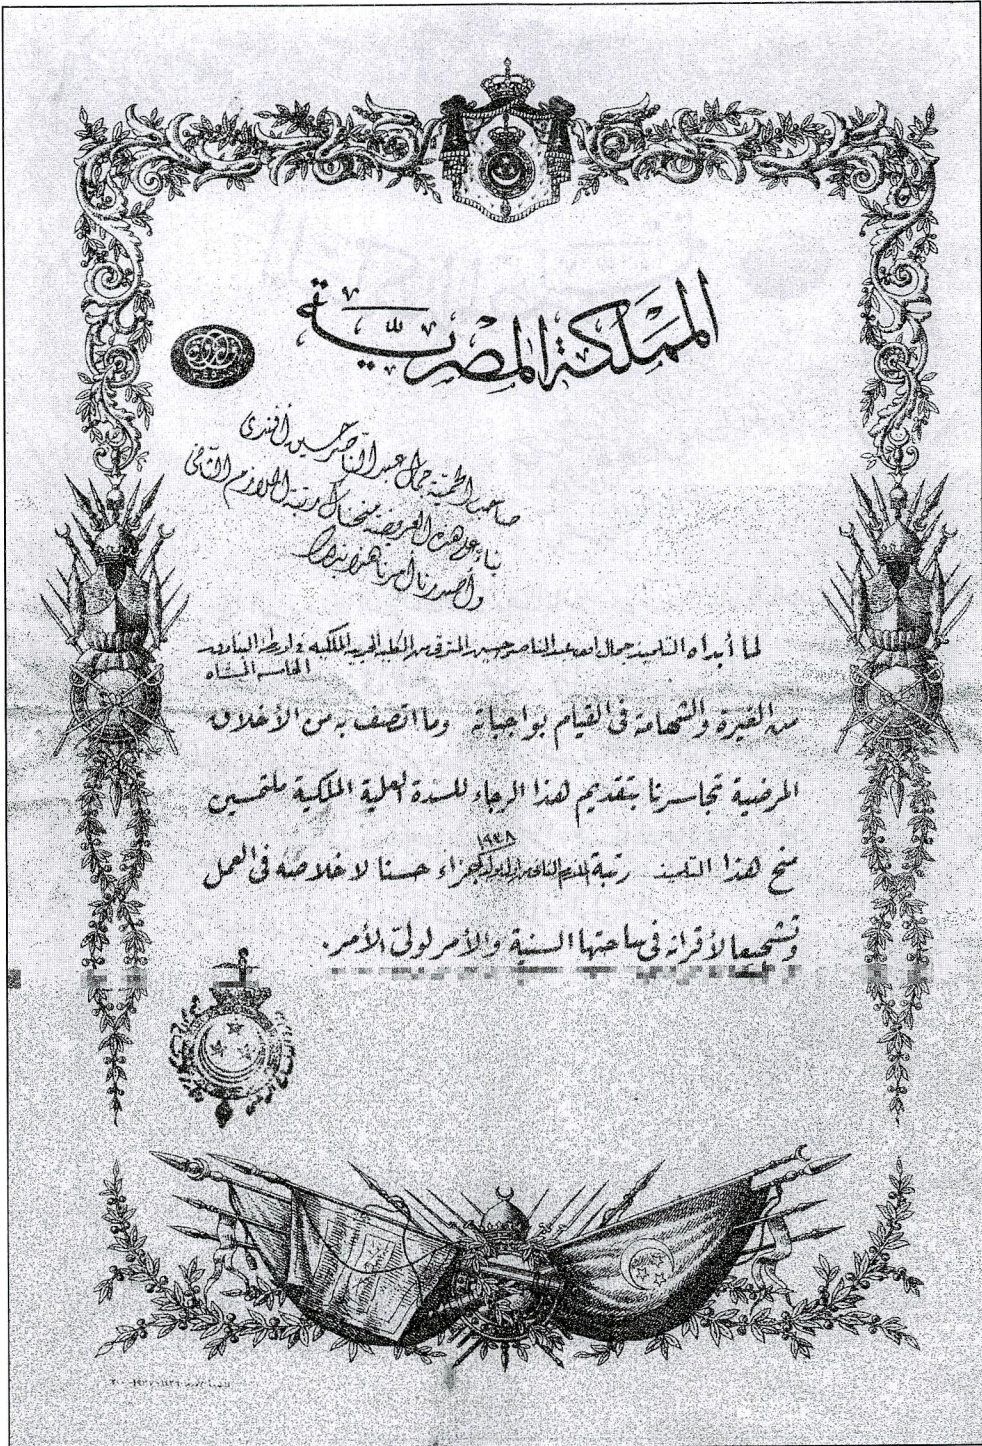 المملكة المصرية
صاحب الحمية جمال عبد الناصر حسين أفندى
بناء على هذه العريضة منحناك رتبة الملازم الثانى
وأصدرنا أمرنا هذا بذلك
لما أبداه التلميذ جمال عبد الناصر حسين المترقى من الكلية الحربية الملكية فى اورطة البنادق
الخامسة المشاه
من الغيرة والشهامة فى القيام بواجباته وما اتصف به من الأخلاق
المرضية تجاسرنا بتقديم هذا الرجاء للسدة العلية الملكية ملتمسين
١٩٣٨
منح هذا التلميذ رتبة الملازم الثانى جزاء حسنا لاخلاصه فى العمل
وتشجيعا لأقرانه فى ساحتها السنية والأمر لولىّ الأمر.